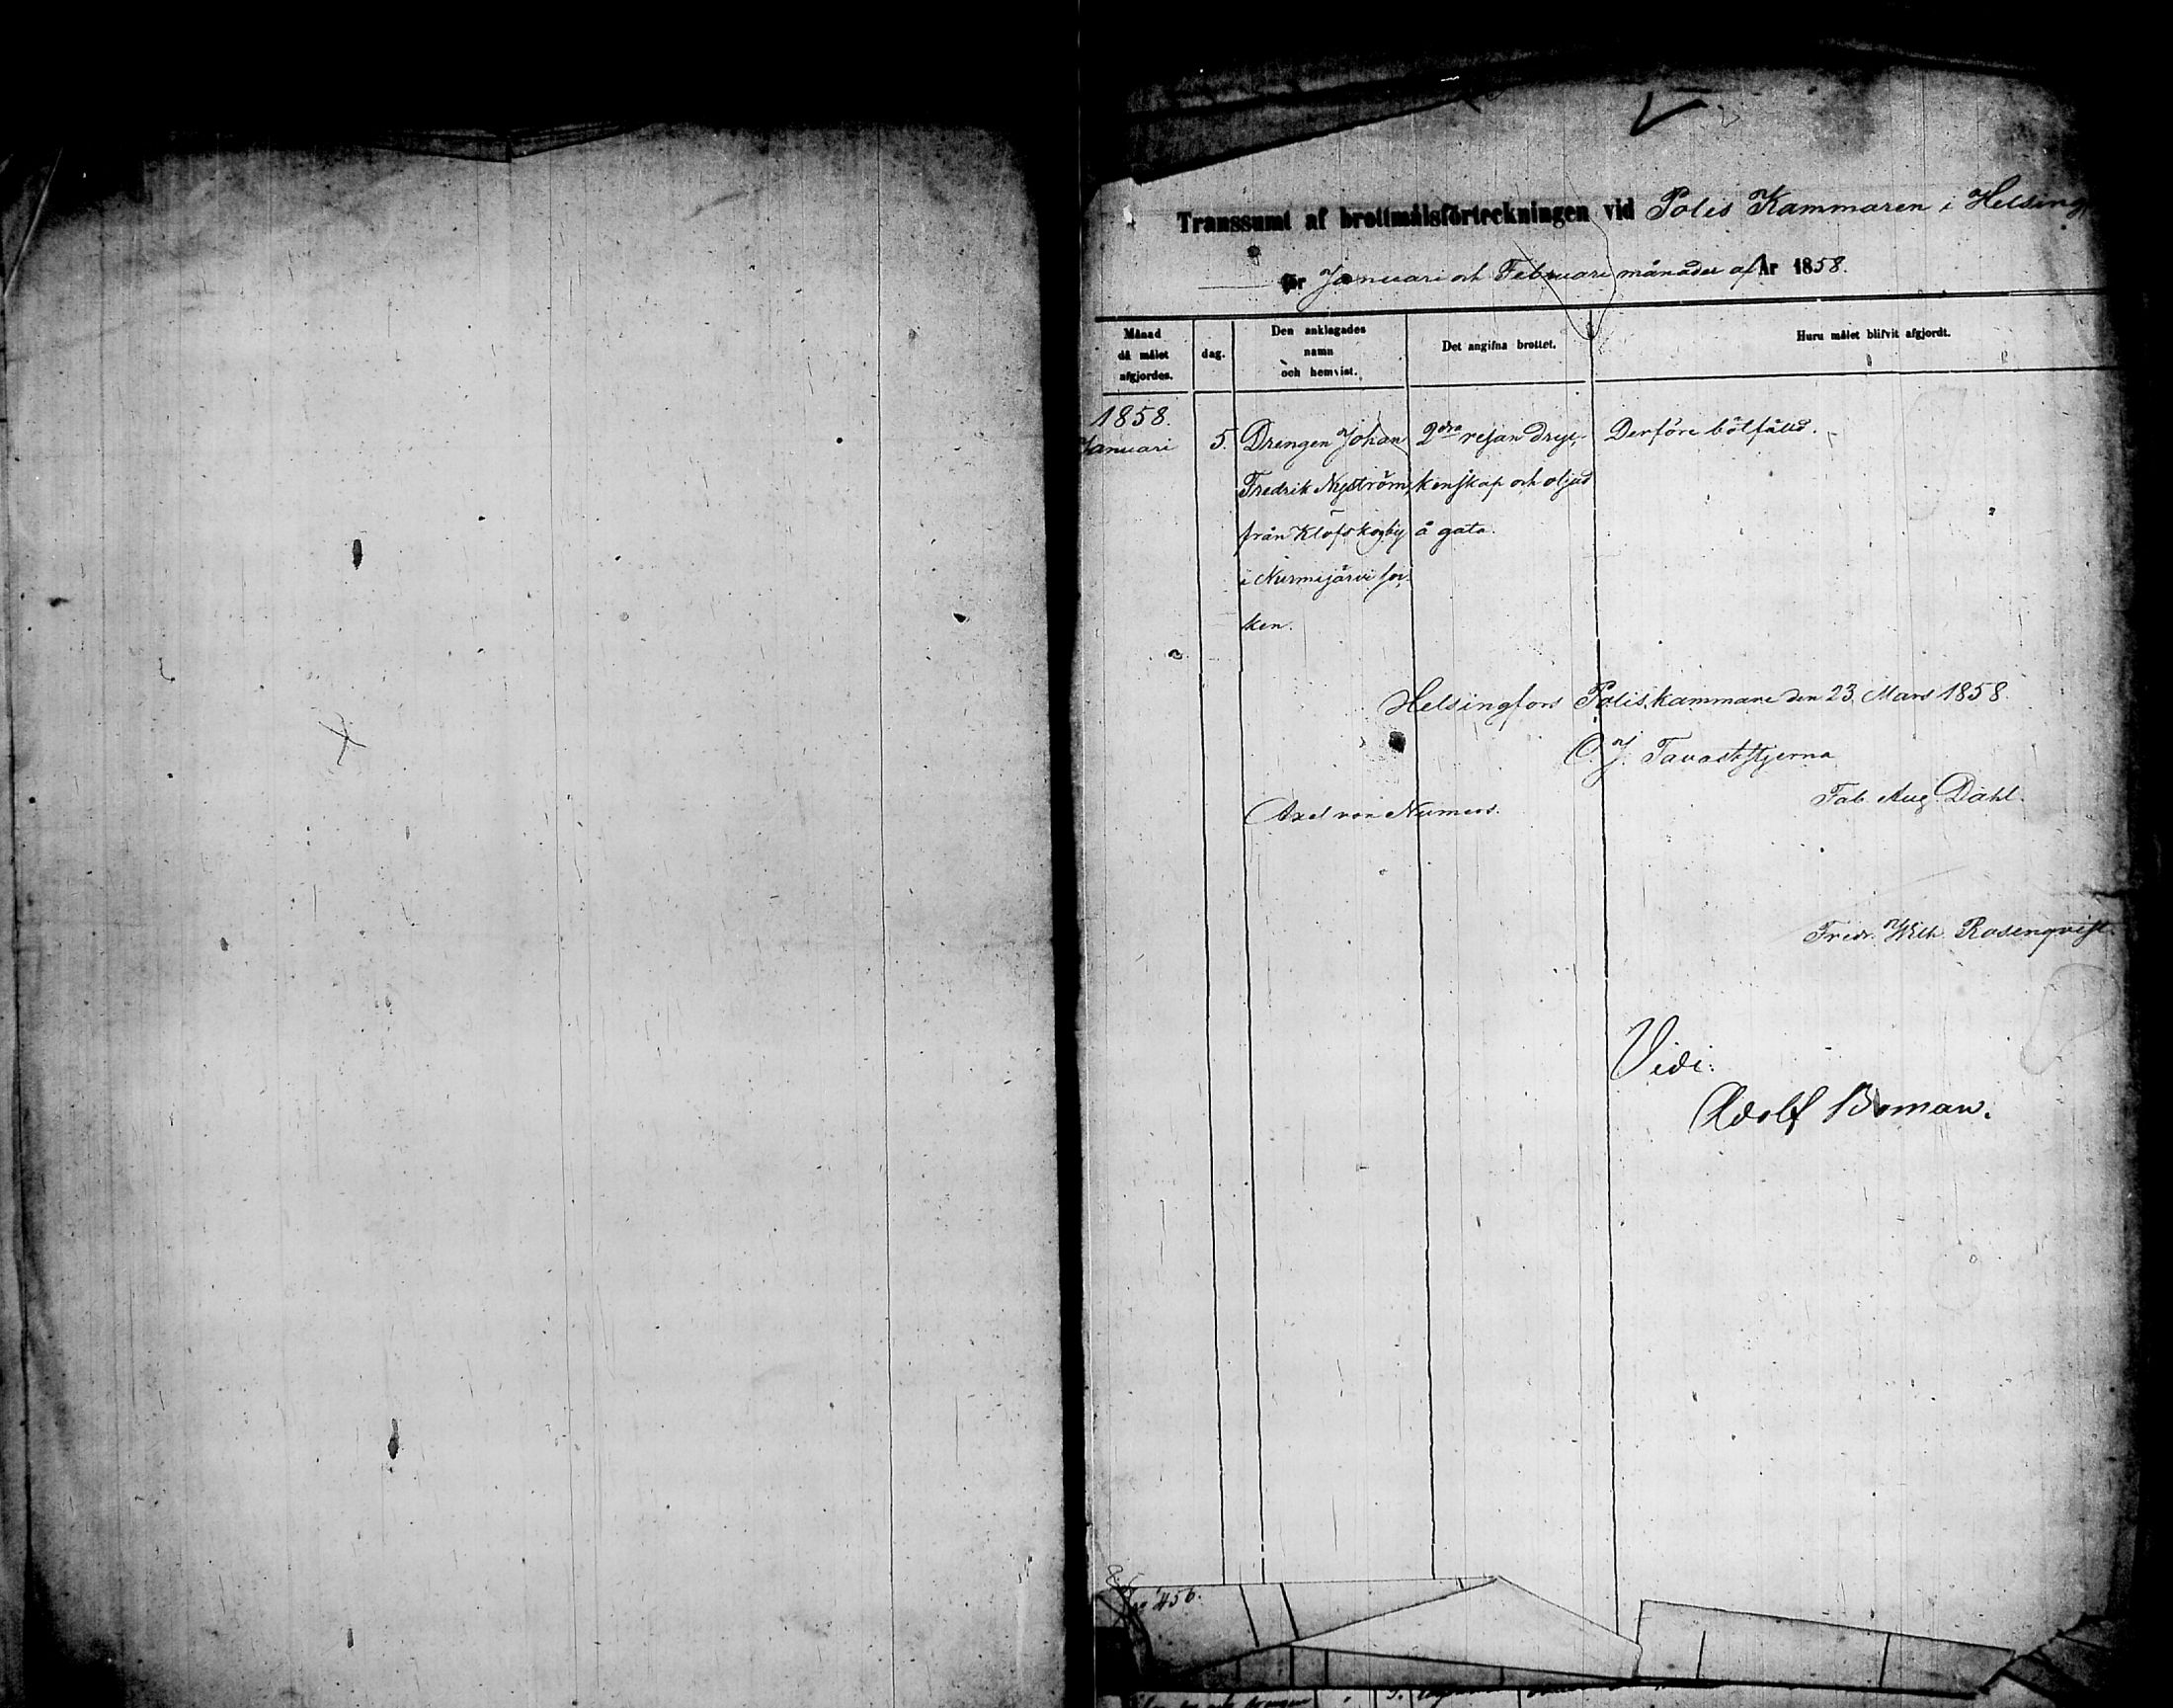 Transsumt af brottmålsförteckningen vid Polis Kammaren i Helsing
för Januari och Februari månader af År 1858.
Månad
då målet
afgjordes.
dag.
Den anklagades
namn
och hemvist.
Det angifna brottet.
Huru målet blifvit afgjordt.
1858.
Januari
5.
Drengen Johan
Fredrik Nyström,
från Klöfskogby
i Nurmijärvi soc
ken.
2dra resan dryc-
kenskap och oljud
å gata.
Derföre bötfälld.
Helsingfors Poliskammare den 23 Mars 1858.
O. J. Tavaststjerna
Fab. Aug. Dahl.
Axel von Numers.
Fredr. Wilh. Rosenqvist.
Vidi:
Adolf Boman.
456.